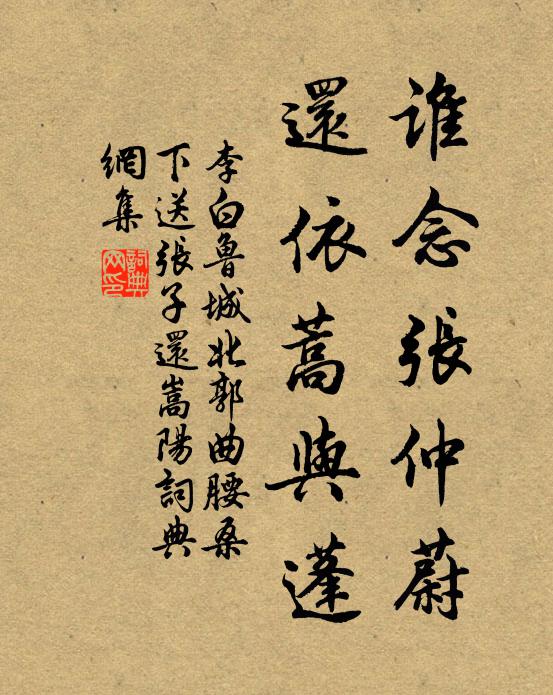 誰念張仲蔚
還依蒿與蓬
李白魯城北郭曲腰桑
下送張子還嵩陽詞典
網集
詞典
网印